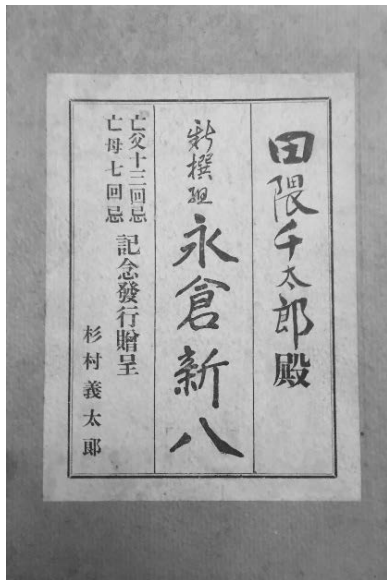 田隈千太郎殿
新撰組 永倉新八
亡父十三回忌
亡母七回忌
記念發行贈呈
杉村義太郎